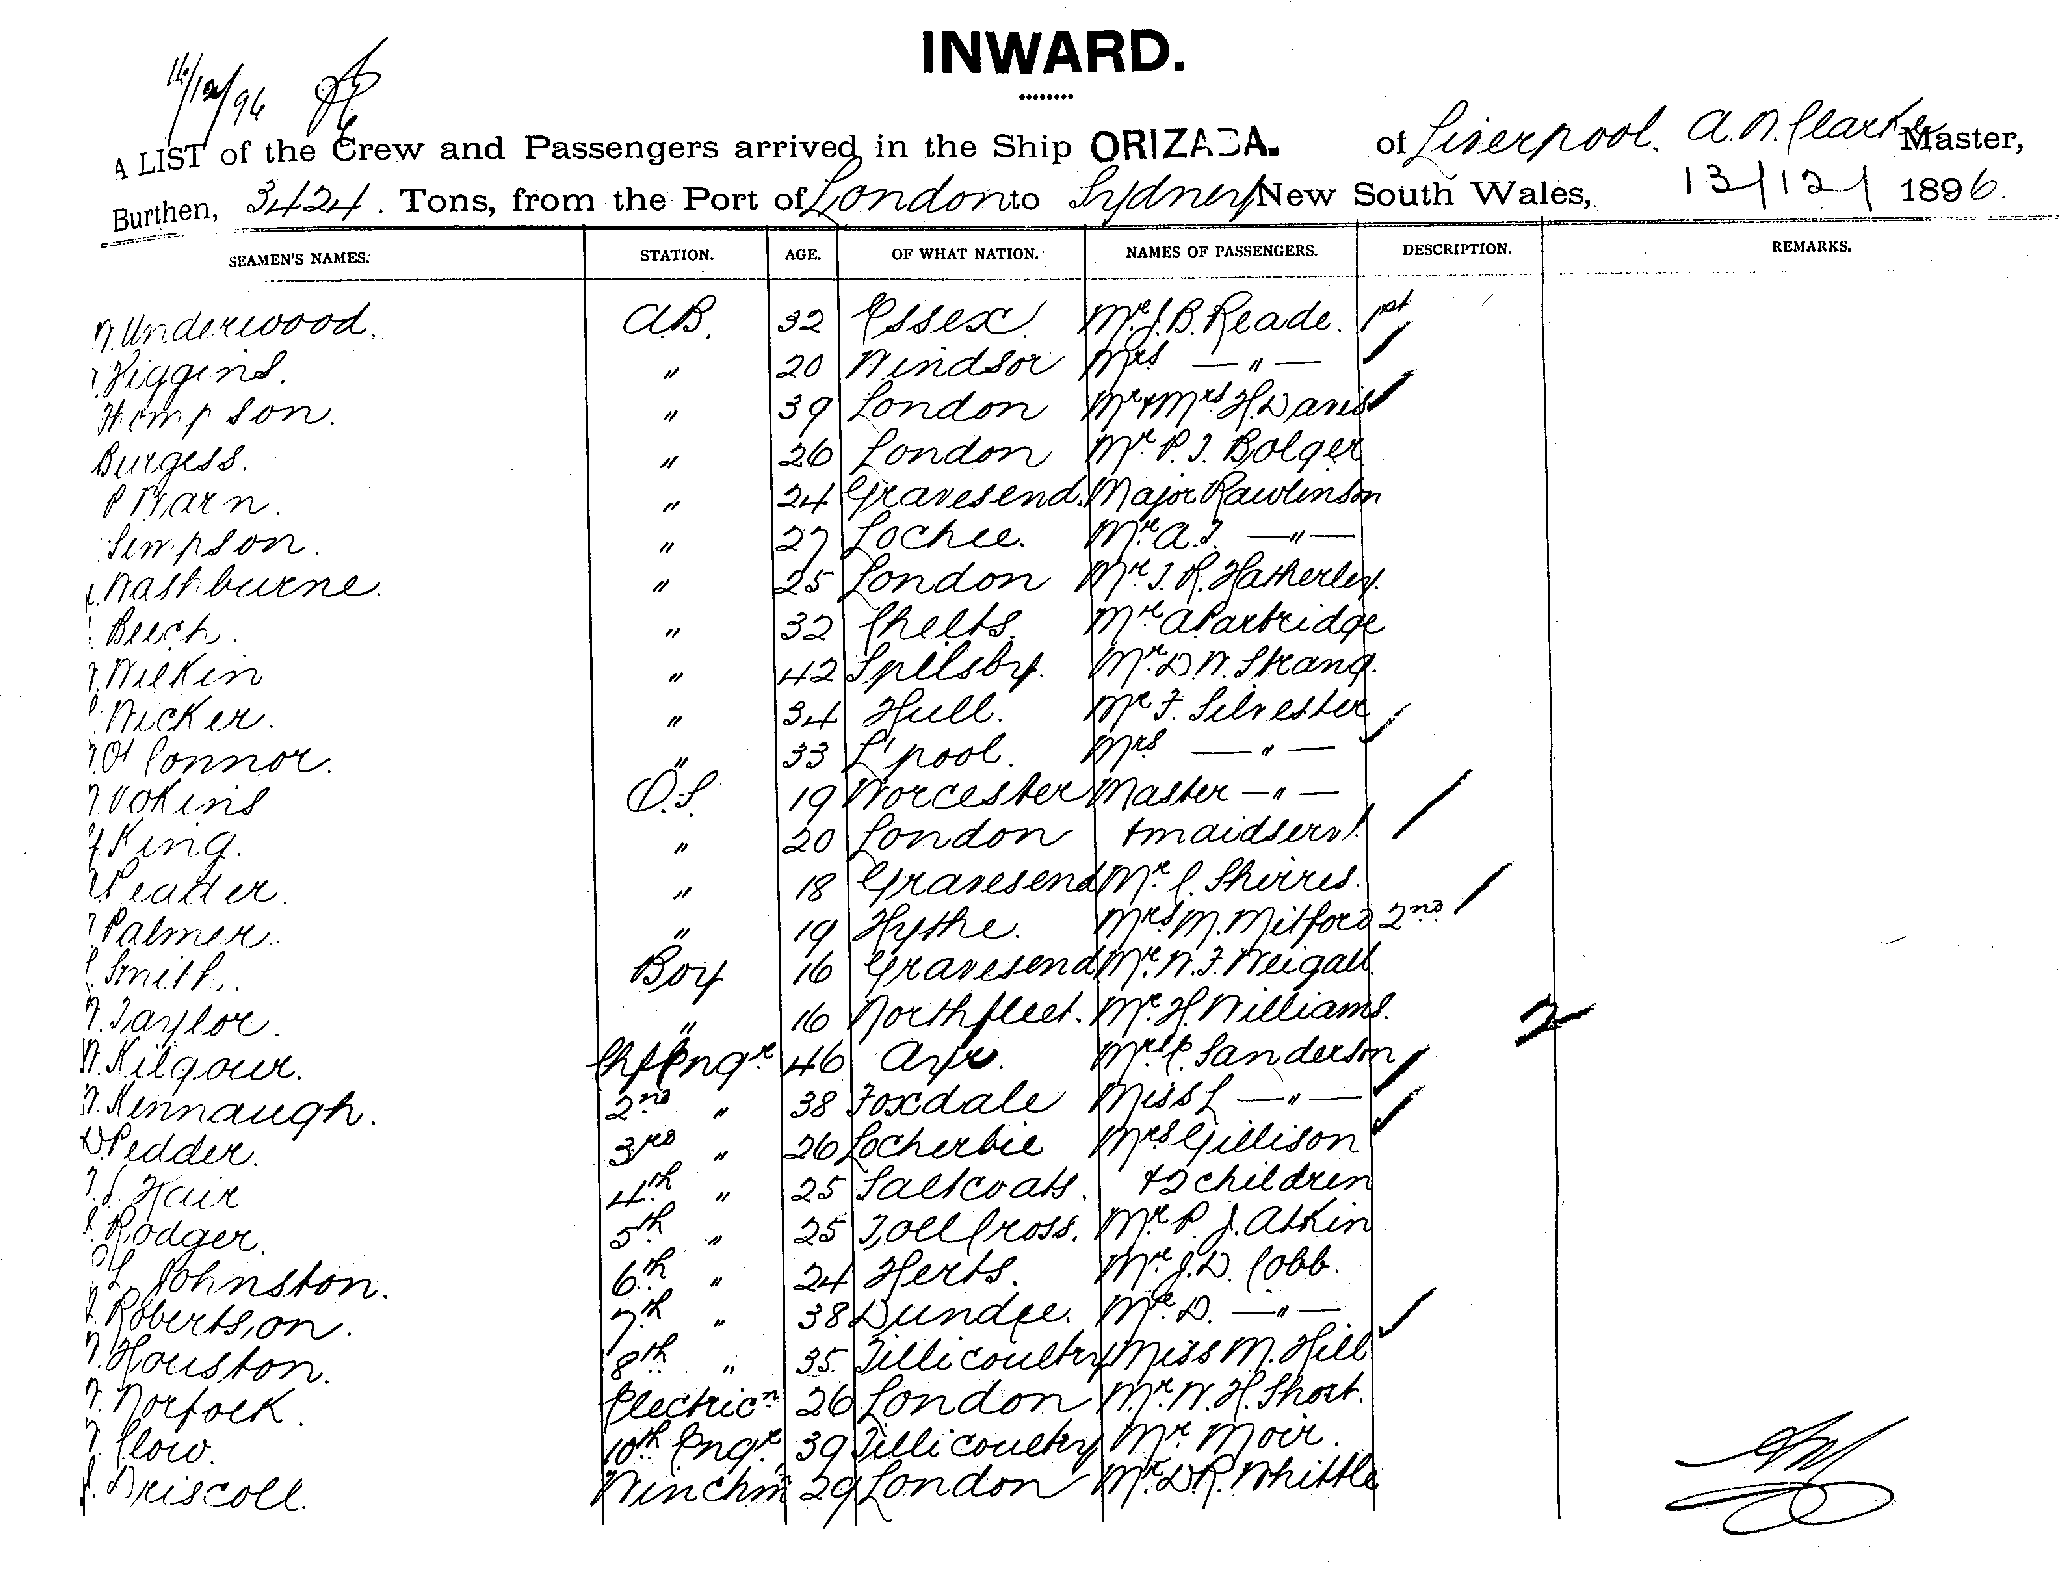 INWARD.
16/12/96
A LIST of the Crew and Passengers arrived in the Ship ORIZABA. of Liverpool. A. N. Clarke Master,
Burthen, 3424. Tons, from the Port of London to Sydney New South Wales, 13/12/1896.
SEAMEN'S NAMES. STATION. AGE. OF WHAT NATION. NAMES OF PASSENGERS. DESCRIPTION. REMARKS.
W. Underwood. A.B. 32 Essex. Mr. J. B. Reade. 1st
Higgins. " 20 Windsor Mrs —"—
Hompson. " 39 London Mr & Mrs H. Davis
Burgess. " 26 London Mr. P. J. Bolger
P Warn. " 24 Gravesend. Major Rawlinson
Simpson. " 27 Lochee. Mr. A. J. —"—
Washburne. " 25 London Mr. J. R. Hatherley.
Beech. " 32 Chelts. Mr A Partridge
Wilkin " 42 Spilsby. Mr. D. W. Strang.
Wicker. " 34 Hull. Mr F. Silvester
O'Connor. " 33 L'pool. Mrs —"—
Vokins O.S. 19 Worcester Master —"—
King. " 20 London + maidservt.
Leader. " 18 Gravesend Mr. C. Shirres.
Palmer. " 19 Hythe. Mrs M. Mitford 2nd
Smith. Boy 16 Gravesend Mr. W. F. Weigall
Taylor. " 16 Northfleet. Mr. H. Williams. 2
W. Kilgour. Chf Engr 46 Ayr. Mrs C. Sanderson
Kennaugh. 2nd " 38 Foxdale Miss L —"—
D Pedder. 3rd " 26 Locherbie Mrs Gillison
Hair 4th " 25 Saltcoats. + 2 children
Rodger. 5th " 25 Toll Cross. Mr. P. J. Atkin
Johnston. 6th " 24 Herts. Mr. J. D. Cobb.
Robertson. 7th " 38 Dundee. Mr. D. —"—
Houston. 8th " 35 Tillicoultry Miss M. Hill
Norfolk. Electricn 26 London Mr. W. H. Short.
Clow. 10th Engr. 39 Tillicoultry Mr. Moir.
Driscoll. Winchm 29 London Mr. D. R. Whittle